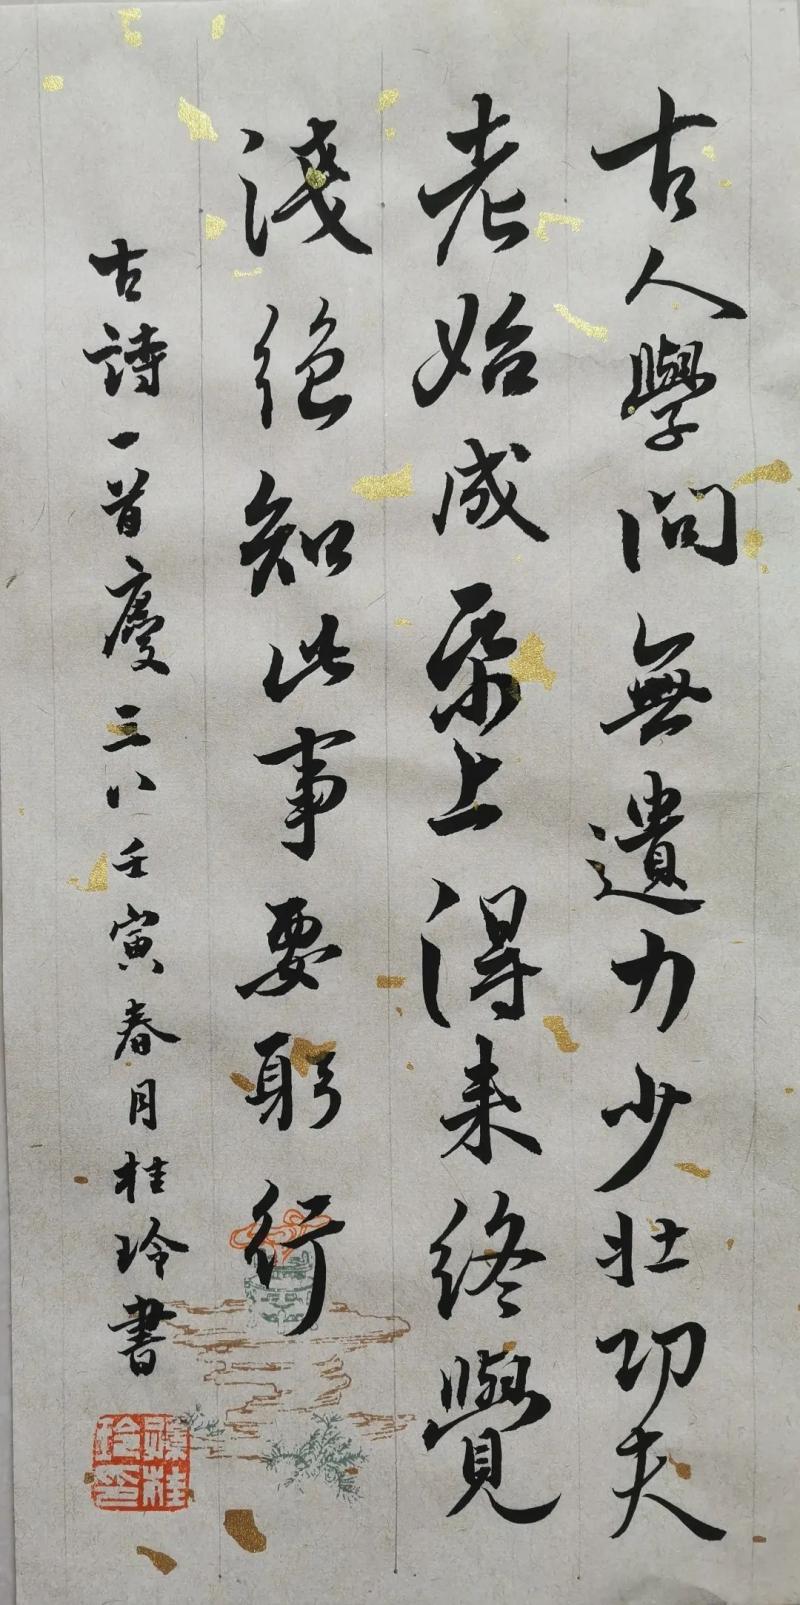 古人學問無遺力少壯功夫
老始成帋上得来終覺
淺絕知此事要躬行
古詩一首慶三八壬寅春月桂玲書
張桂玲印